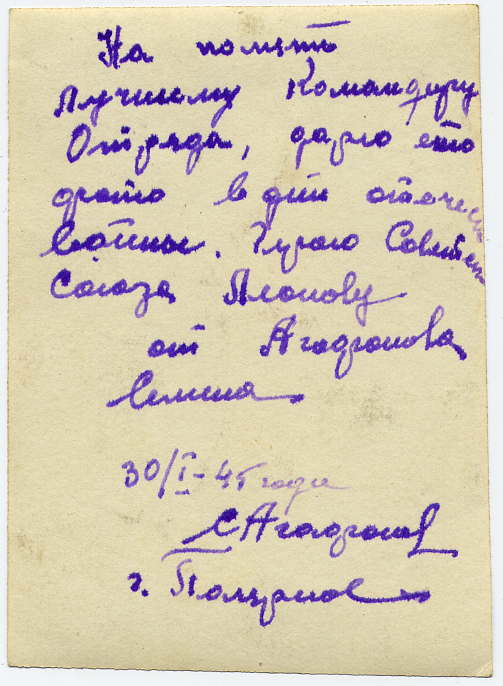 На помять
Лучшему Командиру
Отряда, дарю ето
фото в дни отечест
Войны. Герою Советск
Союза Леонову
от Агафонова
Семена
30/I-45 года
САгафонов
г. Полярное